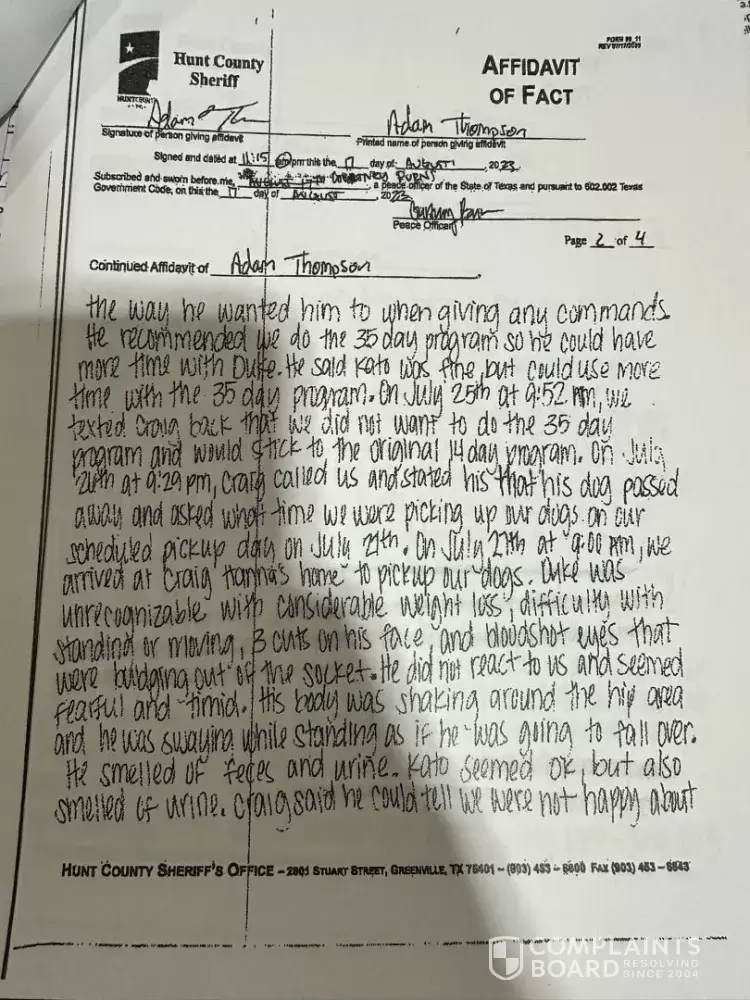 FORM 99_11
Hunt County
Sheriff
AFFIDAVIT
OF FACT
Adam Thompson
Signature of person giving affidavit
Printed name of person giving affidavit
Signed and dated at 11:15 am pm this the 17 day of AUGUST, 2023
Subscribed and sworn before me, a peace officer of the State of Texas and pursuant to 602.002 Texas
Government Code, on this the 17 day of AUGUST, 2023
Peace Officer
Page 2 of 4
Continued Affidavit of Adam Thompson
the way he wanted him to when giving any commands.
He recommended we do the 35 day program so he could have
more time with Duke. He said Kato was fine, but could use more
time with the 35 day program. On July 25th at 9:52 AM, we
texted Craig back that we did not want to do the 35 day
program and would stick to the original 14 day program. On July
26th at 9:29 pm, Craig called us and stated his that his dog passed
away and asked what time we were picking up our dogs on our
scheduled pickup day on July 27th. On July 27th at 9:00 AM, we
arrived at Craig Hanna's home to pickup our dogs. Duke was
unrecognizable with considerable weight loss, difficulty with
standing or moving, 3 cuts on his face, and bloodshot eyes that
were buldging out of the socket. He did not react to us and seemed
fearful and timid. His body was shaking around the hip area
and he was swaying while standing as if he was going to fall over.
He smelled of feces and urine. Kato seemed ok, but also
smelled of urine. Craig said he could tell we were not happy about
HUNT COUNTY SHERIFF'S OFFICE – 2801 STUART STREET, GREENVILLE, TX 75401 – (903) 453 – 6800 FAX (903) 453 – 6843
COMPLAINTS
BOARD RESOLVING
SINCE 2004